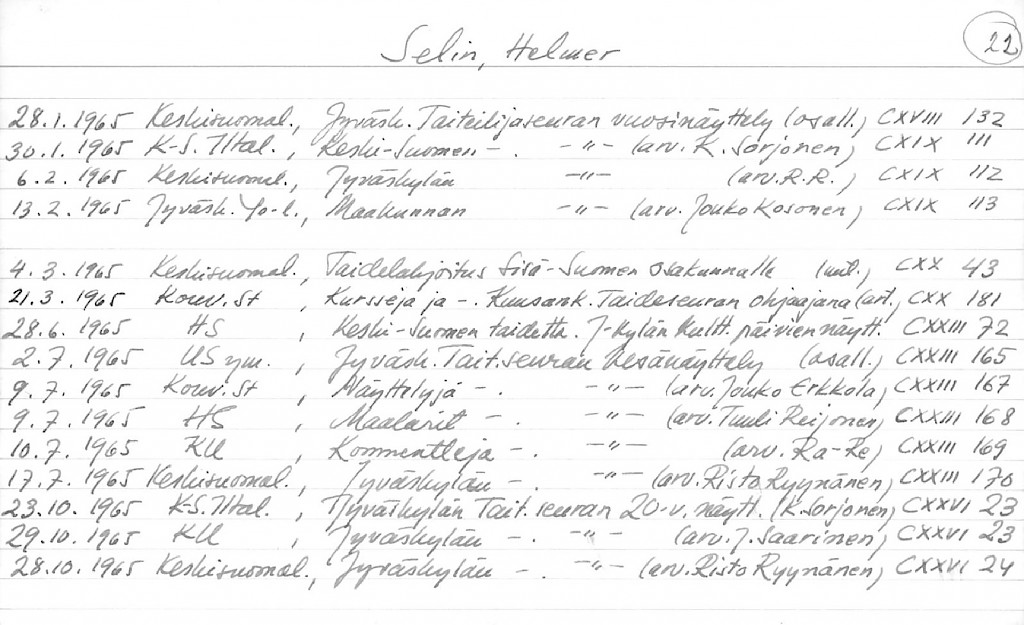 22
Selin, Helmer
28.1.1965 Keskisuomal., Jyväsk. Taiteilijaseuran vuosinäyttely (osall.) CXVIII 132
30.1.1965 K-S. Iltal., Keski-Suomen - . -"- (arv. K. Sorjonen) CXIX 111
6.2.1965 Keskisuomal., Jyväskylän -"- (arv. R.R.) CXIX 112
13.2.1965 Jyväsk. Yo-l., Maakunnan -"- (arv. Jouko Kosonen) CXIX 113
4.3.1965 Keskisuomal., Taidelahjoitus Sisä-Suomen osakunnalle (uut.) CXX 43
21.3.1965 Kouv. St , Kursseja ja -. Kuusank. Taideseuran ohjaajana (art. CXX 181
28.6.1965 HS , Keski-Suomen taidetta. J-kylän Kultt. päivien näytt. CXXIII 72
2.7.1965 US ym. , Jyväsk. Tait. seuran kesänäyttely (osall.) CXXIII 165
9.7.1965 Kouv. St , Näyttelyjä - . -"- (arv. Jouko Erkkola) CXXIII 167
9.7.1965 HS , Maalarit - . -"- (arv. Tuuli Reijonen) CXXIII 168
10.7.1965 KU , Kommentteja - . -"- (arv. Ra-Re) CXXIII 169
17.7.1965 Keskisuomal., Jyväskylän - . -"- (arv. Risto Ryynänen) CXXIII 170
23.10.1965 K-S. Iltal. , Jyväskylän Tait. seuran 20-v. näytt. (K. Sorjonen) CXXVI 23
29.10.1965 KU , Jyväskylän - . -"- (arv. J. Saarinen) CXXVI 23
28.10.1965 Keskisuomal., Jyväskylän - . -"- (arv. Risto Ryynänen) CXXVI 24